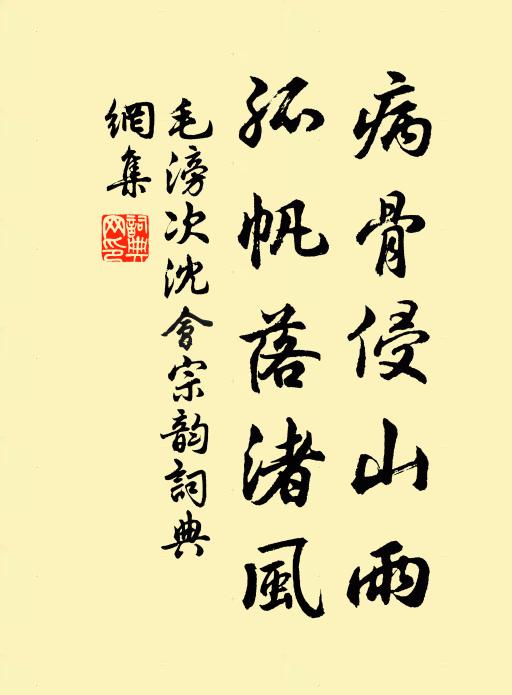 病骨侵山雨
孤帆落渚風
毛滂次沈會宗韵詞典
網集
詞典網印